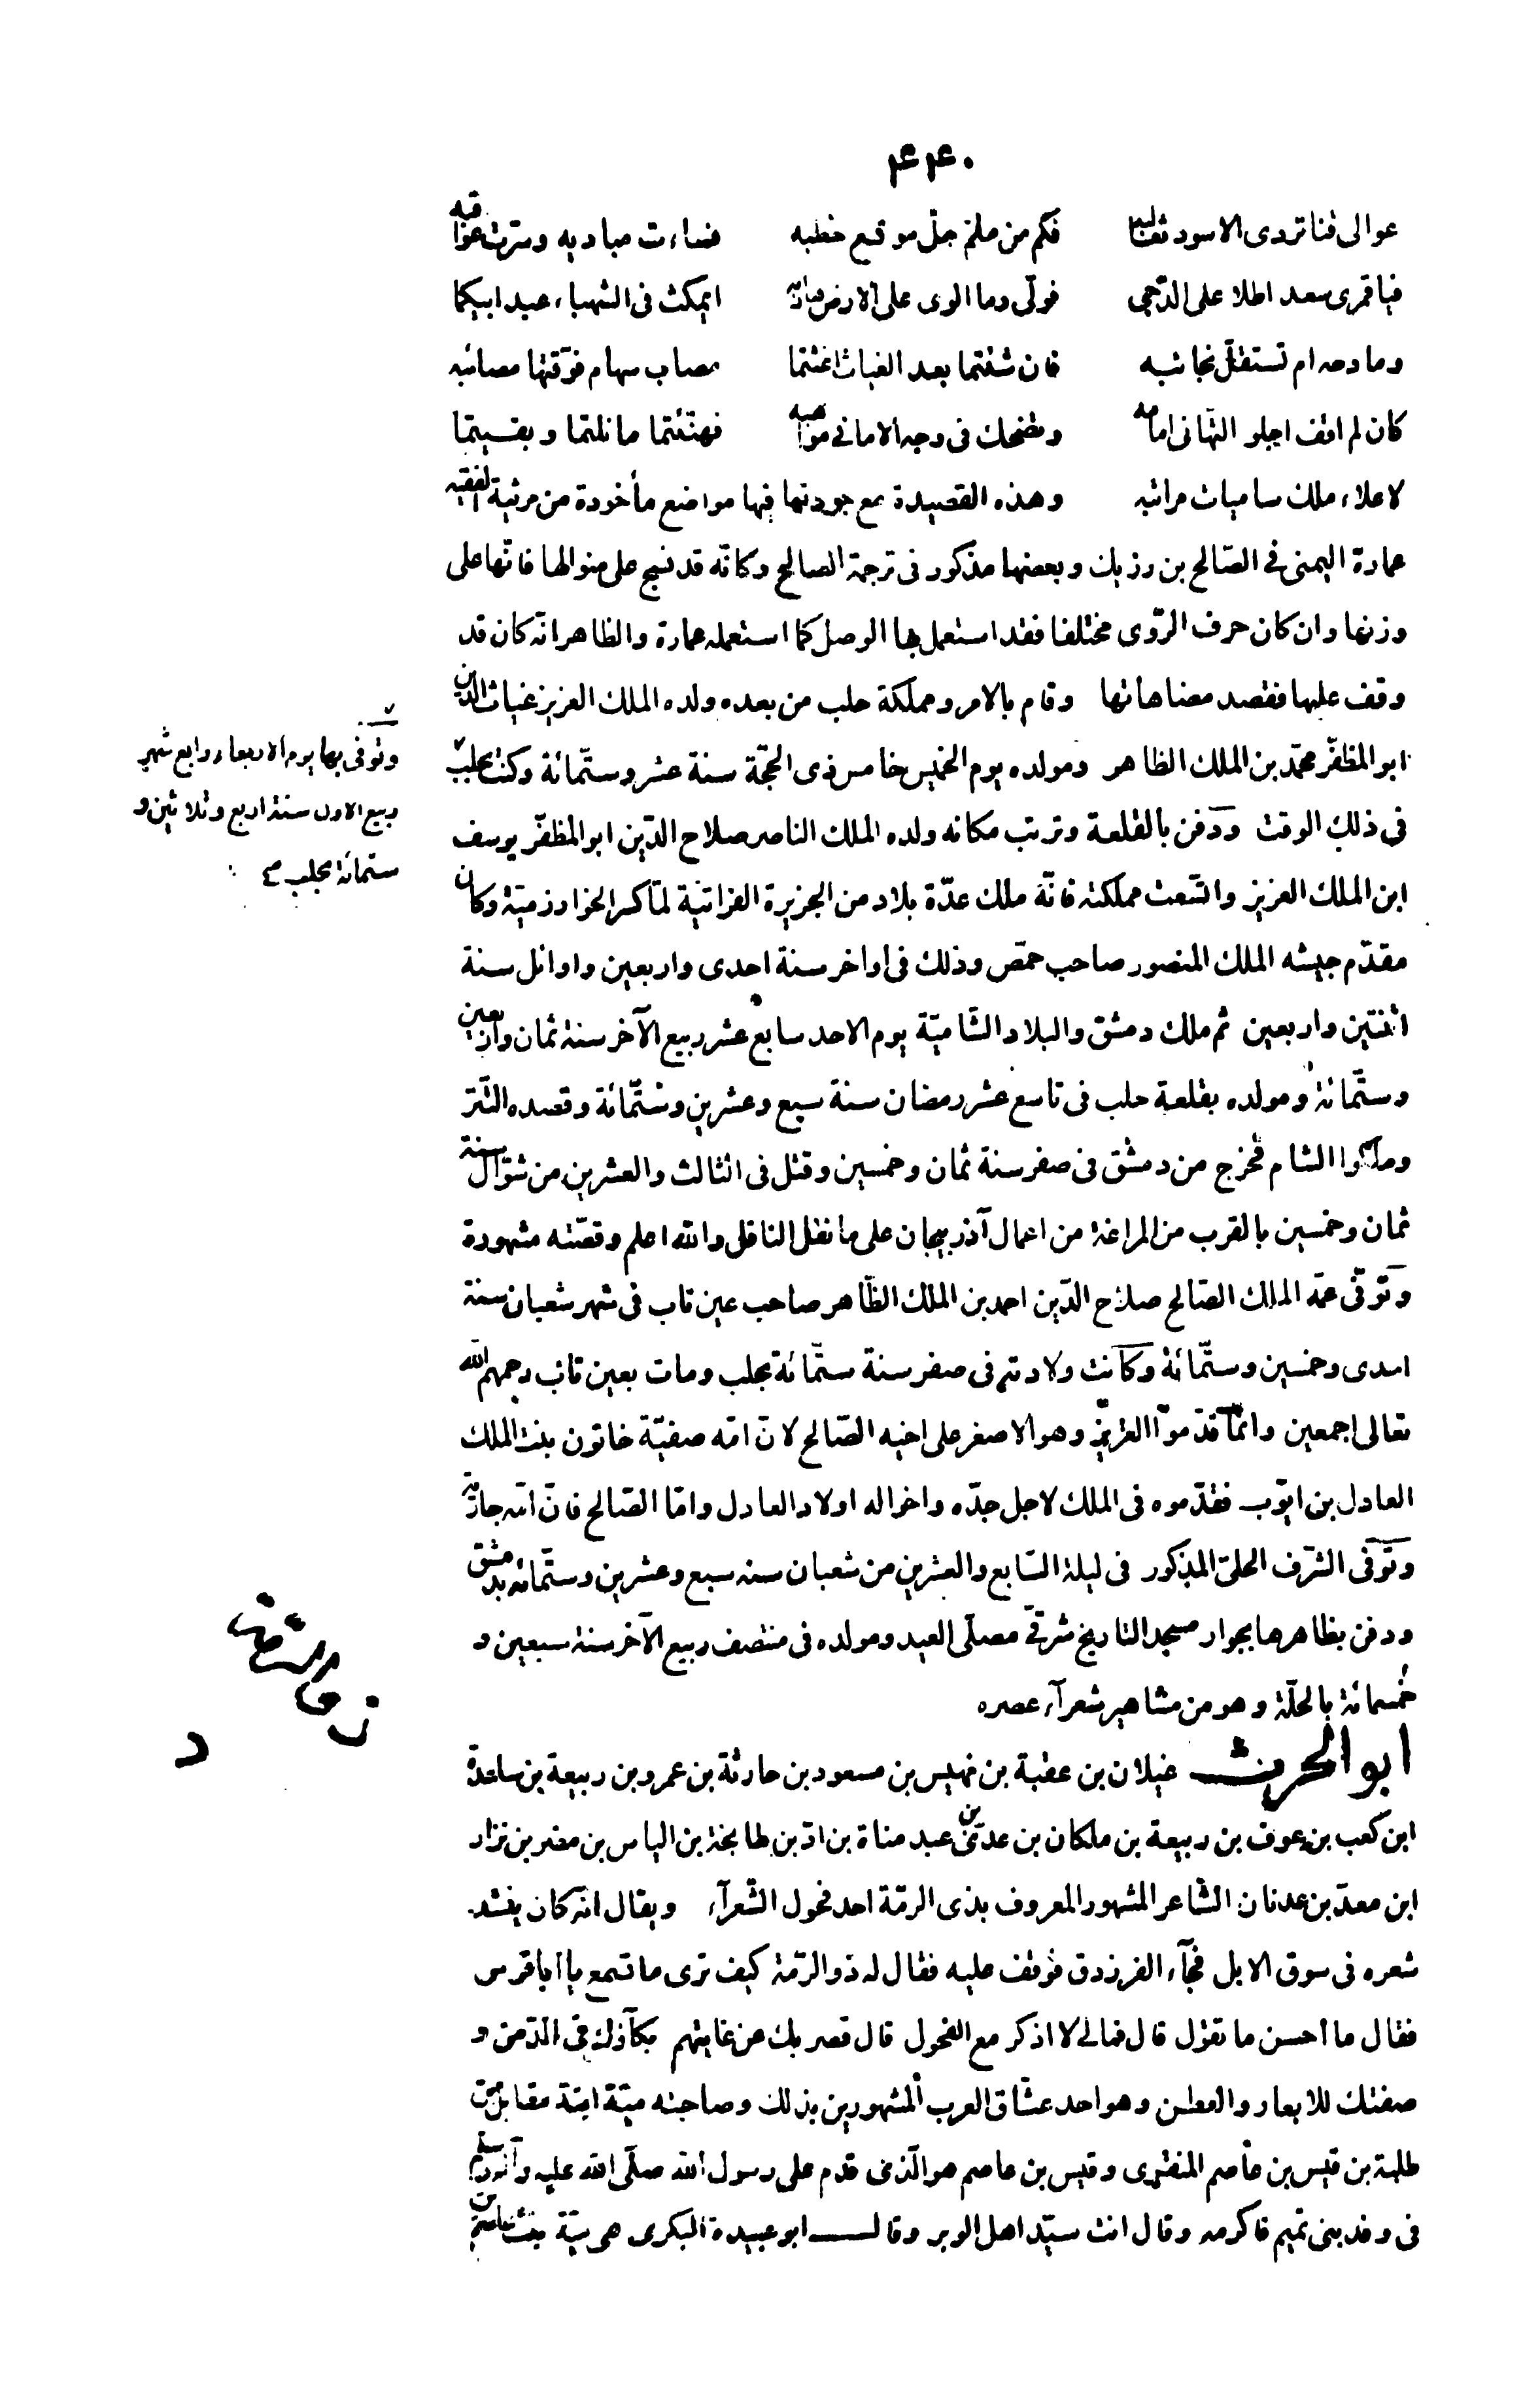 ۴۴۰
عوالى قنا تردى الاسود ثعالبه فكم من ملمّ جلّ موقع خطبه فساءت مباديه وسرّت عواقبه
فيا قمرى سعد اطلا على الدّجى فولّى وما الوى على الارض ايمكث فى الشهباء عبد ابيكما
ومادحه ام تستقلّ نجائبه فان شئتما بعد الغياث اغثتما مصاب سهام فوّقتها مصائبه
كان لم اقف اجلو التهانى امامه وتضحك فى وجه الامانى مواهبه فهنّئتما ما نلتما وبقيتما
لاعلاء ملك ساميات مراتبه وهذه القصيدة مع جودتها فيها مواضع مأخوذة من مرثية الفقيه
عمارة اليمنى فى الصّالح بن رزيك وبعضها مذكور فى ترجمة الصالح وكانّه قد نسج على منوالها فانّها على
وزنها وان كان حرف الرّوى مختلفا فقد استعمل بها الوصل كما استعمله عمارة والظاهر انّه كان قد
وقف عليها فقصد مضاهاتها وقام بالامر ومملكة حلب من بعده ولده الملك العزيز غياث الدّين
ابو المظفّر محمّد بن الملك الظاهر ومولده يوم الخميس خامس ذى الحجّة سنة عشر وستّمائة وكنت بحلب
فى ذلك الوقت ودفن بالقلعة وترتب مكانه ولده الملك الناصر صلاح الدّين ابو المظفّر يوسف
ابن الملك العزيز واتّسعت مملكته فانّه ملك عدّة بلاد من الجزيرة الفراتيّة لمّا كسر الخوارزميّة وكان
مقدّم جيشه الملك المنصور صاحب حمص وذلك فى اواخر سنة احدى واربعين واوائل سنة
اثنتين واربعين ثم ملك دمشق والبلاد الشّاميّة يوم الاحد سابع عشر ربيع الآخر سنة ثمان واربعين
وستّمائة ومولده بقلعة حلب فى تاسع عشر رمضان سنة سبع وعشرين وستّمائة وقصده التّتر
وملكوا الشام فخرج من دمشق فى صفر سنة ثمان وخمسين وقتل فى الثالث والعشرين من شوّال سنة
ثمان وخمسين بالقرب من المراغة من اعمال آذربيجان على ما نقل الناقل والله اعلم وقصّته مشهورة
وتوفّى عمّه الملك الصّالح صلاح الدّين احمد بن الملك الظّاهر صاحب عين تاب فى شهر شعبان سنة
احدى وخمسين وستّمائة وكانت ولادته فى صفر سنة ستّمائة بحلب ومات بعين تاب رحمهم الله
تعالى اجمعين وانّما قدّموا العزيز وهو الاصغر على اخيه الصّالح لانّ امّه صفيّة خاتون بنت الملك
العادل بن ايّوب فقدّموه فى الملك لاجل جدّه واخواله اولاد العادل وامّا الصّالح فانّ امّه جارية
وتوفّى الشّرف الحلىّ المذكور فى ليلة السّابع والعشرين من شعبان سنه سبع وعشرين وستّمائه بدمشق
ودفن بظاهرها بجوار مسجد التاريخ شرقىّ مصلّى العيد ومولده فى منتصف ربيع الآخر سنة سبعين و
خمسمائة بالحلّة وهو من مشاهير شعرآء عصره
ابو الحرث غيلان بن عقبة بن نهيس بن مسعود بن حارثة بن عمرو بن ربيعة بن ساعدة
ابن كعب بن عوف بن ربيعة بن ملكان بن عدىّ بن عبد مناة بن ادّ بن طابخة بن الياس بن مضر بن نزار
ابن معدّ بن عدنان الشّاعر المشهور المعروف بذى الرمّة احد فحول الشّعرآء ويقال انّه كان ينشد
شعره فى سوق الابل فجآء الفرزدق فوقف عليه فقال له ذو الرّمّة كيف ترى ما تسمع يا ابا فرس
فقال ما احسن ما تقول قال فمالى لا اذكر مع الفحول قال قصر بك عن غايتهم بكآؤك فى الدّمن و
صفتك للابعار والعطن وهو احد عشّاق العرب المشهورين بذلك وصاحبته ميّة ابنة مقاتل بن
طلبة بن قيس بن عاصم المنقرى وقيس بن عاصم هو الّذى قدم على رسول الله صلّى الله عليه وآله وسلم
فى وفد بنى تميم فاكرمه وقال انت سيّد اهل الوبر وقال ابو عبيدة البكرى هى ميّة بنت عاصم بن
وتوفى بها يوم الاربعاء رابع شهر
ربيع الاول سنة اربع وثلاثين و
ستمائة بحلب صح
ذو الرمة الشاعر